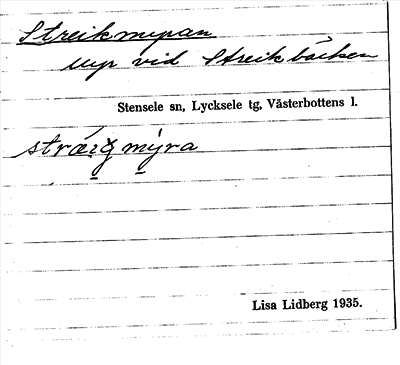 Streikmyran
myr vid Streikbäcken
Stensele sn, Lycksele tg, Västerbottens l.
mýra
Lisa Lidberg 1935.